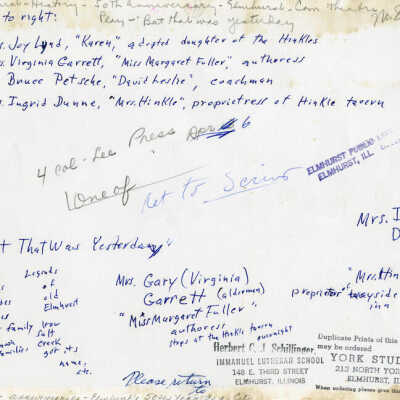 History - 50th anniversary - Elmhurst - Com Theatre
Play - "But that was yesterday
to right:
s. Joy Lynd, "Karen," adopted daughter of the Hinkles
s. Virginia Garrett, "Miss Margaret Fuller", authoress
Bruce Petsche, "David Leslie", coachman
s. Ingrid Dunne, "Mrs. Hinkle", proprietress of Hinkle tavern
4 col - Lee Press 6
1 one of
ret to
ELMHURST PUBLIC
ELMHURST, ILL.
Mrs. I
D
t That Was Yesterday"
Legends
of
old
Elmhurst
family
Salt
Creek
families got its
name,
etc.
Mrs. Gary (Virginia)
Garrett (alderman)
"Miss Margaret Fuller"
authoress
stops at the Hinkle tavern
overnight
"Mrs. Hin
proprietor of wayside
inn
Herbert C. J. Schillinger
IMMANUEL LUTHERAN SCHOOL
148 E. THIRD STREET
ELMHURST, ILLINOIS
Duplicate Prints of this
may be ordered
YORK STUD
213 NORTH YOR
ELMHURST, IL
When ordering please give this
Please return
to